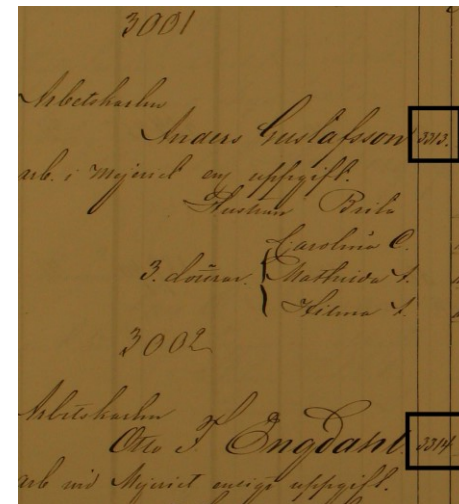 3001
Arbetskarlen
Anders Gustafsson 3313.
arb. i Mejeriet enl uppgift.
Hustrun Brita
Carolina C.
3. döttrar. { Mathilda A.
Hilma A.
3002
Arbetskarlen
Otto F. Engdahl. 3314
arb vid Mejeriet enligt uppgift.